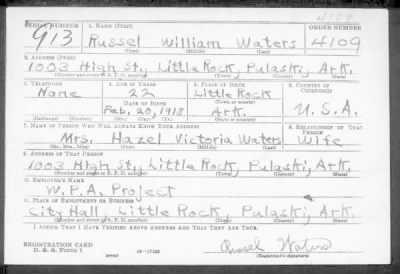 4109
SERIAL NUMBER 1. NAME (Print) ORDER NUMBER
913 Russel William Waters 4109
(First) (Middle) (Last)
2. ADDRESS (Print)
1003 High St, Little Rock, Pulaski, Ark.
(Number and street or R. F. D. number) (Town) (County) (State)
3. TELEPHONE 4. AGE IN YEARS 5. PLACE OF BIRTH 6. COUNTRY OF CITIZENSHIP
None 22 Little Rock
DATE OF BIRTH (Town or county)
Feb, 20, 1918 Ark. U.S.A.
(Exchange) (Number) (Mo.) (Day) (Yr.) (State or country)
7. NAME OF PERSON WHO WILL ALWAYS KNOW YOUR ADDRESS 8. RELATIONSHIP OF THAT PERSON
Mrs. Hazel Victoria Waters Wife
(Mr., Mrs., Miss) (First) (Middle) (Last)
9. ADDRESS OF THAT PERSON
1003 High St, Little Rock, Pulaski, Ark.
(Number and street or R. F. D. number) (Town) (County) (State)
10. EMPLOYER'S NAME
W.P.A. Project
11. PLACE OF EMPLOYMENT OR BUSINESS
City Hall, Little Rock, Pulaski, Ark.
(Number and street or R. F. D. number) (Town) (County) (State)
I AFFIRM THAT I HAVE VERIFIED ABOVE ANSWERS AND THAT THEY ARE TRUE.
REGISTRATION CARD
D. S. S. Form 1 16—17105 Russel Waters
(over) (Registrant's signature)